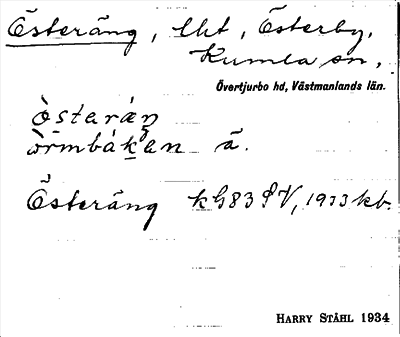 Österäng, lht, Österby,
Kumla sn,
Övertjurbo hd, Västmanlands län.
òsteráŋ
òrmbák en ä.
Österäng kG83 SV, 1933 kb.
HARRY STÅHL 1934